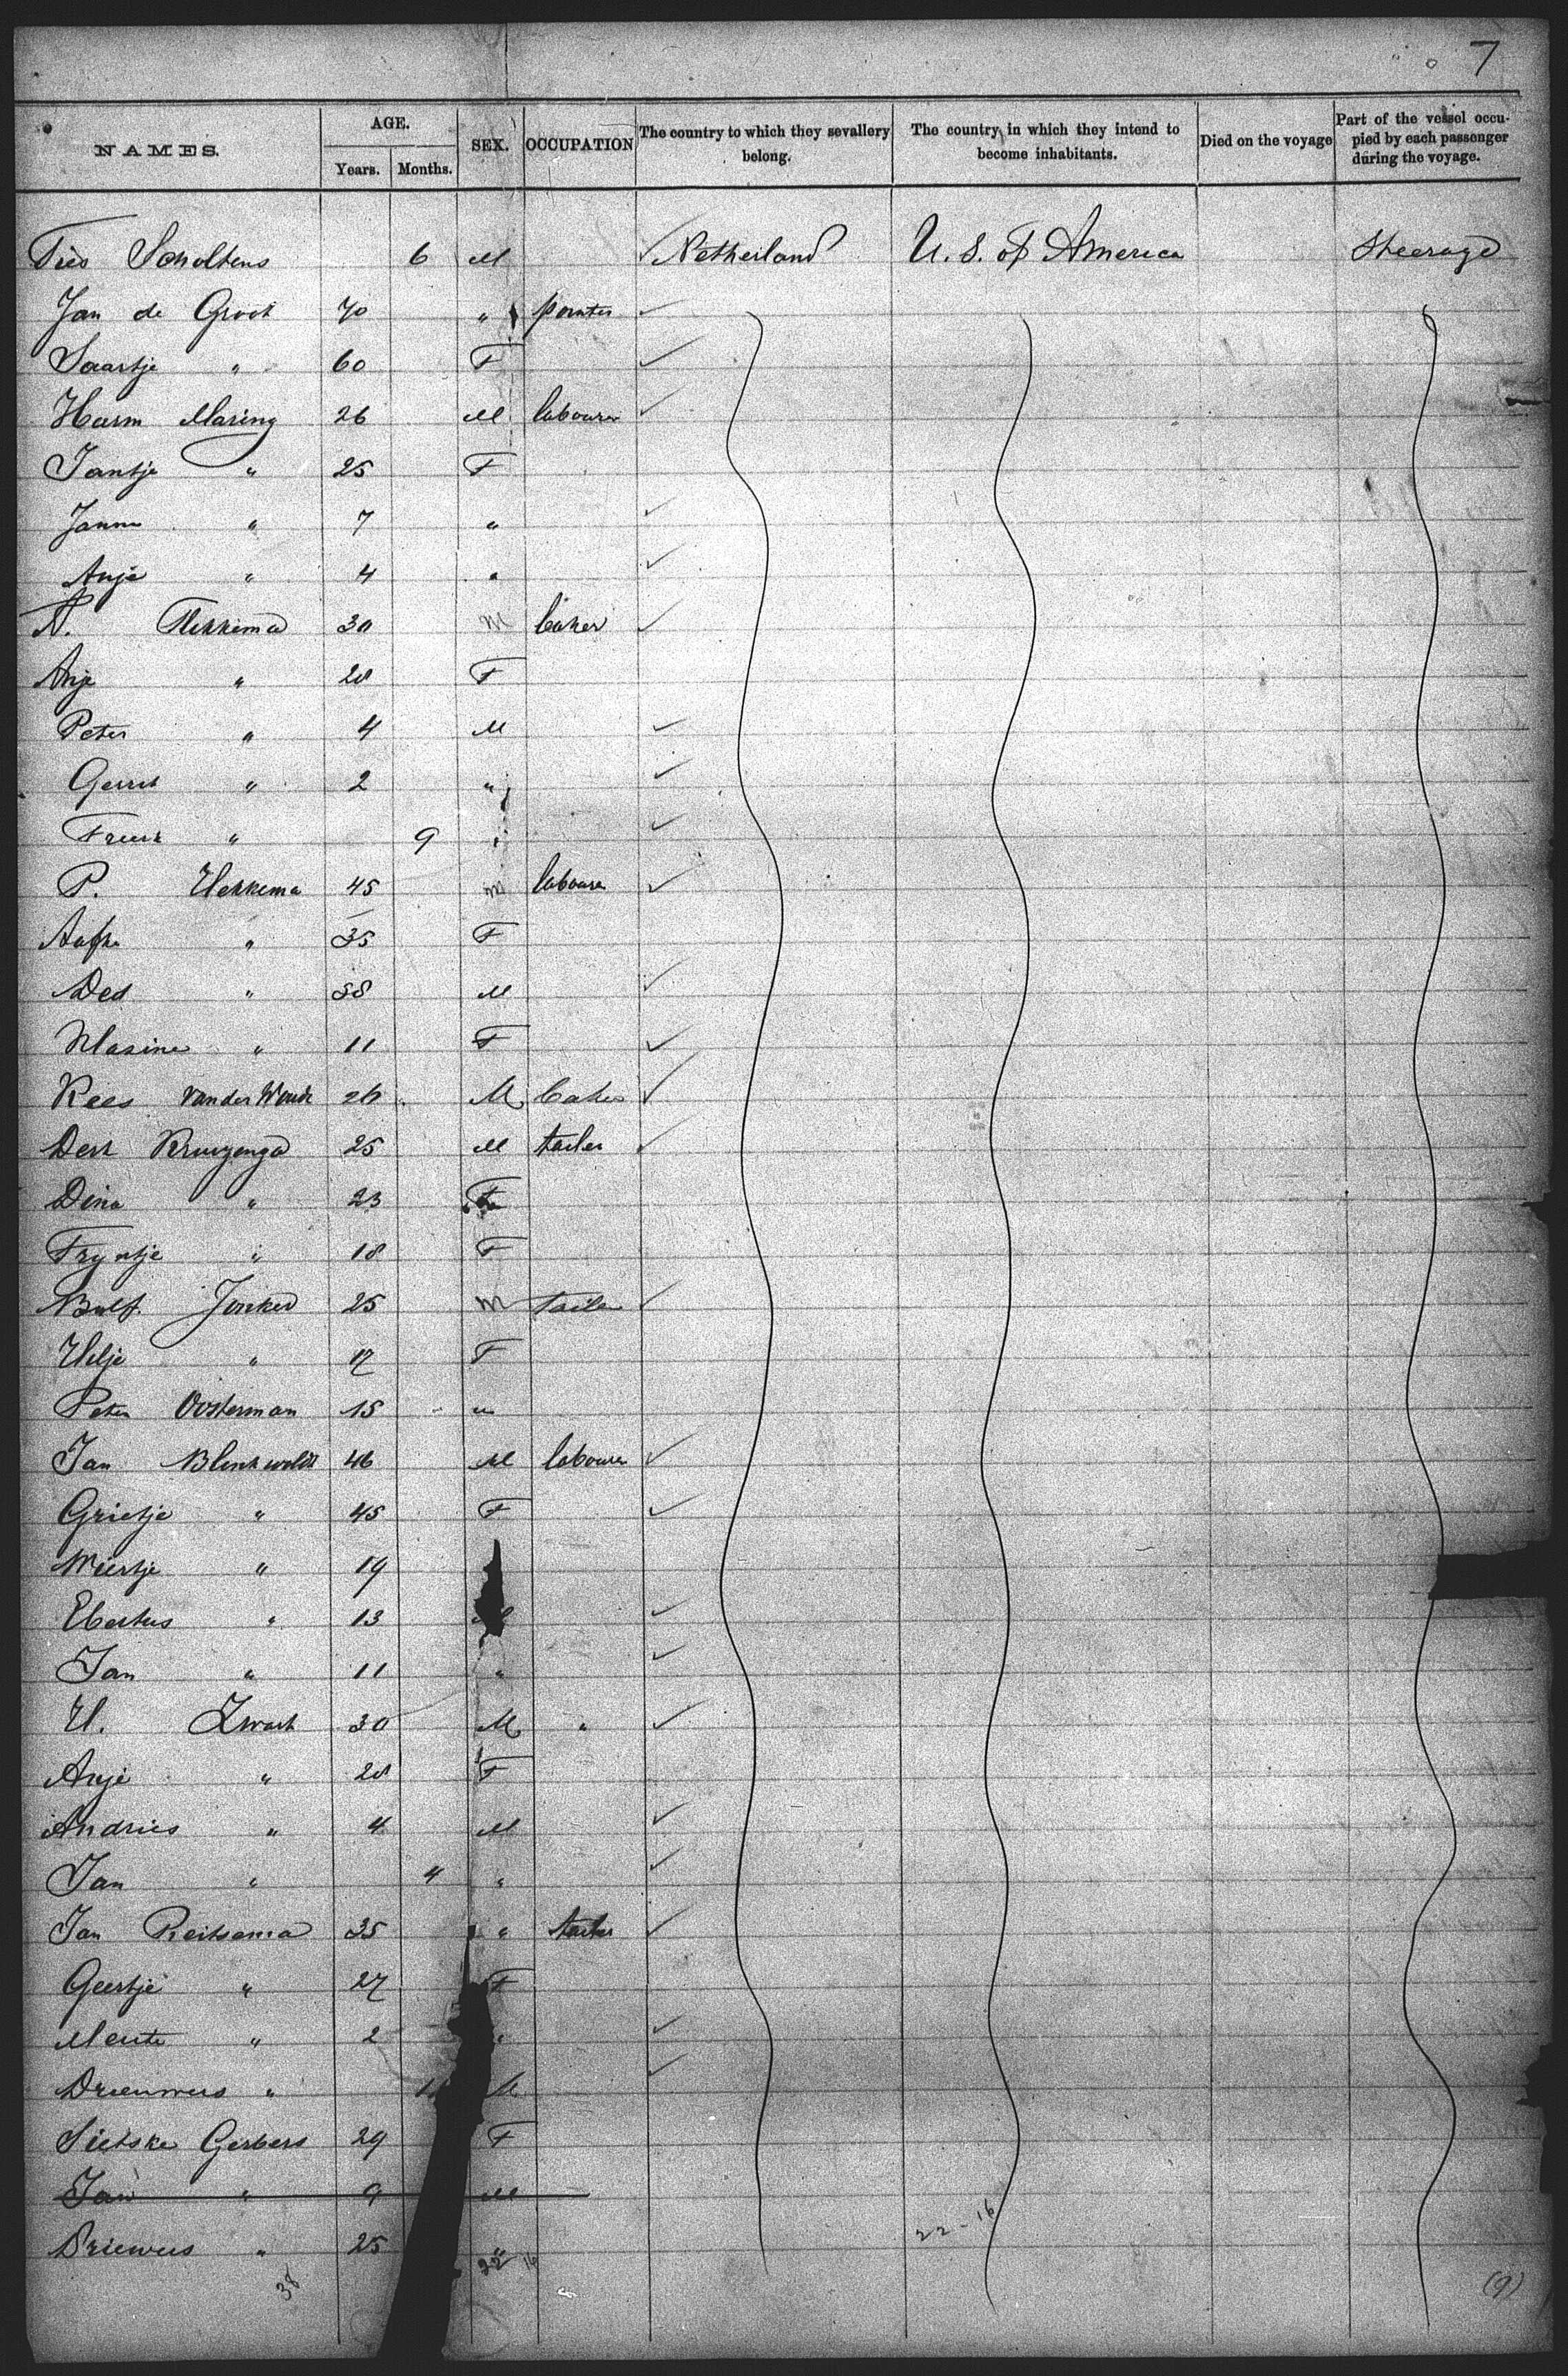 7
NAMES. AGE. Years. Months. SEX. OCCUPATION The country to which they sevallery belong. The country in which they intend to become inhabitants. Died on the voyage Part of the vessel occupied by each passenger during the voyage.
Ties Scholtens 6 M Netherland U. S. of America Steerage
Jan de Groot 70 "
Saartje " 60 F
Harm Maring 26 M labourer
Jantje " 25 F
Janna " 7 "
Anje " 4 "
Hekkema 30 M baker
Anje " 28 F
Peter " 4 M
Gerrit " 2 "
" 9 "
P. Hekkema 45 M labourer
" 35 F
" 38 M
" 11 F
Kees van der Woude 26 M baker
Derk Kruizenga 25 M tailer
Dina " 23 F
Tryntje " 18 F
Jonker 25 M tailer
Hilje " 17 F
Peter Oosterman 15 "
Jan 46 M labourer
Grietje " 45 F
Wiertje " 19
Ebertus " 13
Jan " 11 "
H. Zwart 30 M "
Anje " 28 F
Andries " 4 M
Jan " 4 "
Jan Reitsema 35 " tailer
Geertje " 27 F
" 2 "
" M
Sietske Gerbers 29 F
Jan " 9 M
" 25 "
38 22 16 22-16 (9)